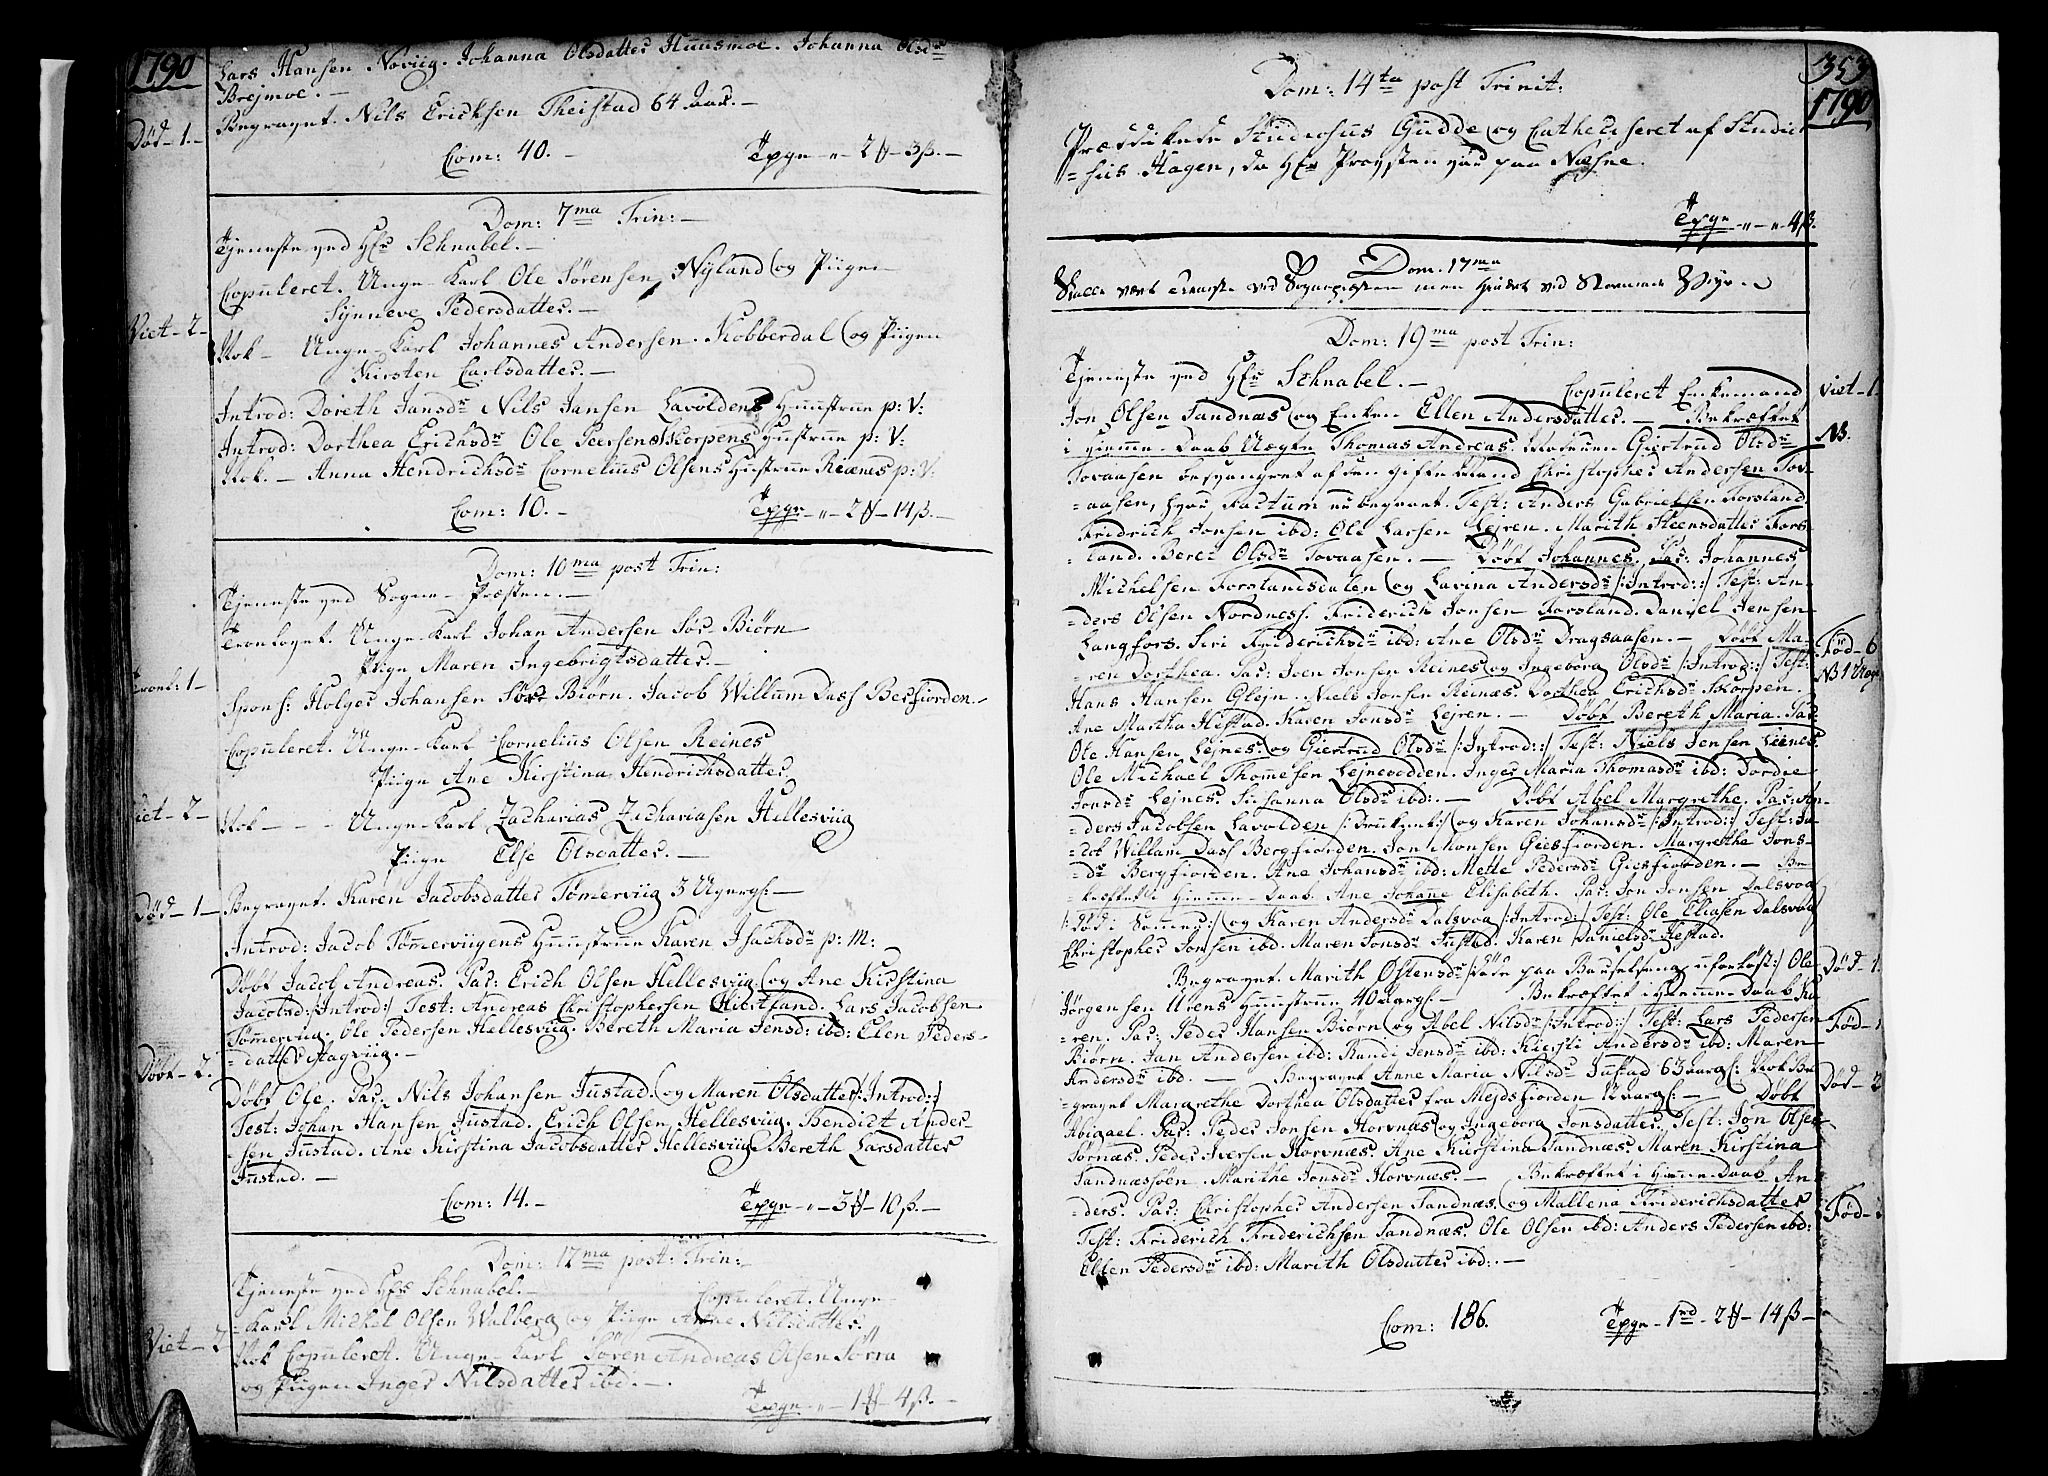 1790
Lars Hansen Noviig. Johanna Olsdatter Huusmoe. Johanna Olsdr
Brejmoe. -
Død - 1. - Begravet. Nils Ericksen Theistad 64 Aar. -
Com: 40. - Tpgr - " - 2 - 3ß. -
Dom: 7ma Trin: -
Tjeneste ved Hr Schnabel. -
Copuleret. Unge-Karl Ole Sørensen Nyland og Piigen
Synneve Pedersdatter. -
Viet - 2 - Nok - Unge-Karl Johannes Andersen Kobberdal og Piigen
Kirsten Carlsdatter. -
Introd: Doreth Jansdr Nils Jansen Lavoldens Huustrue p: V:
Introd: Dorthea Erichsdr Ole Peersens Skorpens Hustrue p: V:
Nok. - Anna Hendrichsdr Cornelius Olsens Hustrue Reines p: V:
Com: 10. - Tpgr - " - 2 - 14ß. -
Dom: 10ma post Trin:
Tjeneste ved Sogne-Præsten. -
Trologet. Unge-Karl Johan Andersen Sør-Biørn
Pige Maren Ingebrigtsdatter. -
Tronl: 1 -
Spons: Holger Johansen Sør Biørn. Jacob Willum Dass Berfiorden. -
Copuleret. Unge-Karl Cornelius Olsen Reines
Piige Ane Kirstina Hendrichsdatter
Viet - 2 - Nok - - - Unge-Karl Zacharias Zachariasen Hellesviig
Piige Else Olsdatter. -
Død - 1 - Begravet. Karen Jacobsdatter Tømerviig 3 Uger gl: -
Introd: Jacob Tømerviigens Huustrue Karen Isachsdr p: M:
Døbt Jacob Andreas. Pat: Erich Olsen Hellesviig og Ane Kirstina
Jacobsd: /:Introd:/ Test: Andreas Christophersen Hiertland. Lars Jacobsen
Tømerviig. Ole Pedersen Hellesviig. Bereth Maria Jensd: ibd: Elen Peders-
Døbt - 2. = datter Aagviig. -
Døbt Ole. Pat: Nils Johansen Justad. og Maren Olsdatter /:Introd:/
Test: Johan Hansen Justad. Erich Olsen Hellesviig. Bendict Ander-
=sen Justad. Ane Kirstina Jacobsdatter Hellesviig Bereth Larsdatter
Justad. -
Com: 14. - Tpgr - " - 3 - 10ß. -
Dom: 12ma post: Trin: -
Tjeneste ved Hr Schnabel. - Copuleret. Unge-
=Karl Michel Olsen Walberg og Piige Anne Nilsdatter.
Viet - 2 Nok Copuleret. Unge-Karl Søren Andreas Olsen Sørra
og Piigen Inger Nilsdatter ibd: -
Tpgr - " - 1 - 4ß. -
353
1790
Dom: 14ta post Trinit:
Prædikede Studiosus Gudde og Catheciseret af Studio
=sus Hagen, da Hr Provsten var paa Næsne.
Tpgr - " - " 4ß.
Dom. 17ma
Skulle vært Tieneste ved Sognepræsten men hindret ved Stormende Veyr. -
Dom: 19ma post Trin:
Tjeneste ved Hr Schnabel. - Copuleret Enkemand Viet - 1
Jon Olsen Sandnæs og Enken Ellen Andersdatter. - Bekræftet
i Hjemme-Daab Uægte Thomas Andreas. Moderen Giertrud Olsdr NB.
Tovaasen besvangret af den gifte Mand Christopher Andersen Tov-
=aasen, hvis factum nu begravet. Test: Anders Gabrielsen Forsland
Fridrich Jonsen ibd: Ole Larsen Lejren. Marith Steensdatter Fors-
=land. Beret Olsdr Tovaasen. - Døbt Johannes, Pat: Johannes
Michelsen Forslandsdalen og Lavina Andersdr /:Introd:/ Test: An-
=ders Olsen Nordness. Friderich Jonsen Forsland. Daniel Jensen
Langfors. Siri Friderichsdr ibd: Ane Olsdr Dragsaasen. - Døbt Ma- Fød - 6
=ren Dorthea. Pat: Joen Jonsen Reines og Ingeborg Olsdr /:Introd:/ Test: NB 1 Uægte
Hans Hansen Glejn. Niels Jonsen Reinæs. Dorthea Erichsdr Skorpen.
Ane Martha Hestad. Karen Jonsdr Lejren. - Døbt Bereth Maria. Pat:
Ole Hansen Lejnes. og Giertrud Olsdr /:Introd:/ Test: Niels Jensen Leines.
Ole Michael Thomesen Lejnevodden. Inger Maria Thomasdr ibd: Dordie
Jonsdr Lejnes. Susanna Olsdr ibd: - Døbt Abel Margrethe. Pat: An-
=ders Jacobsen Lavolden /:druknet:/ og Karen Johansdr /:Introd:/ Test: Ja-
=cob Willum Dass Bergfiorden. Jon Monsen Giesfiorden. Margrethe Jons-
=dr Bergfiorden. Ane Johansdr ibd: Mette Pedersdr Giesfiorden. - Be-
=kræftet i Hiemme-Daab. Ane Johanne Elisabeth. Pat: Jon Jonsen Dalsvog
/:Død i Sommer:/ og Karen Andersdr Dalsvog /:Introd:/ Test: Ole Eliasen Dalsvog
Christopher Jonsen ibd. Maren Jonsdr Justad. Karen Danielsdr Jestad.
Begravet. Marith Ostensdr /:døde paa Barselseng uforløst:/ Ole Død - 1.
Jørgensen Urens Huustrue 40 Aar gl: - Bekræftet i Hiemme-Daab Ka-
=ren. Pat: Peder Hansen Biørn og Abel Nilsdr /:Introd:/ Test: Lars Pedersen Fød - 1
Biørn. Jan Andersen ibd: Randi Jensdr ibd: Kiersti Andersdr ibd: Maren
Andersdr ibd. - Begravet Anne Maria Nilsdr Justad 63 Aar gl: Nok Be- Død - 2
=gravet Margrethe Dorthea Olsdatter fra Mejdsfiorden 12 Aar gl: - Døbt
Abigael. Pat: Peder Jonsen Horvnæs og Ingeborg Jonsdatter. Test: Jon Olsen
Sørnæs. Peder Iversen Horvnæs. Ane Kierstina Sandnæs. Maren Kirstina
Sandnæssjöen. Marithe Jonsdr Horvnæs. - Bekræftet i Hiemme-Daab An-
=ders. Pat: Christopher Andersen Sandnæs. og Mallena Friderichsdatter Fød - 2
Test: Friderich Friderichsen Sandnæs. Ole Olsen ibd: Anders Pedersen ibd:
Ellen Pedersdr ibd: Marith Olsdatter ibd: -
Com: 186. Tpgr - 1rd - 2 - 14ß -